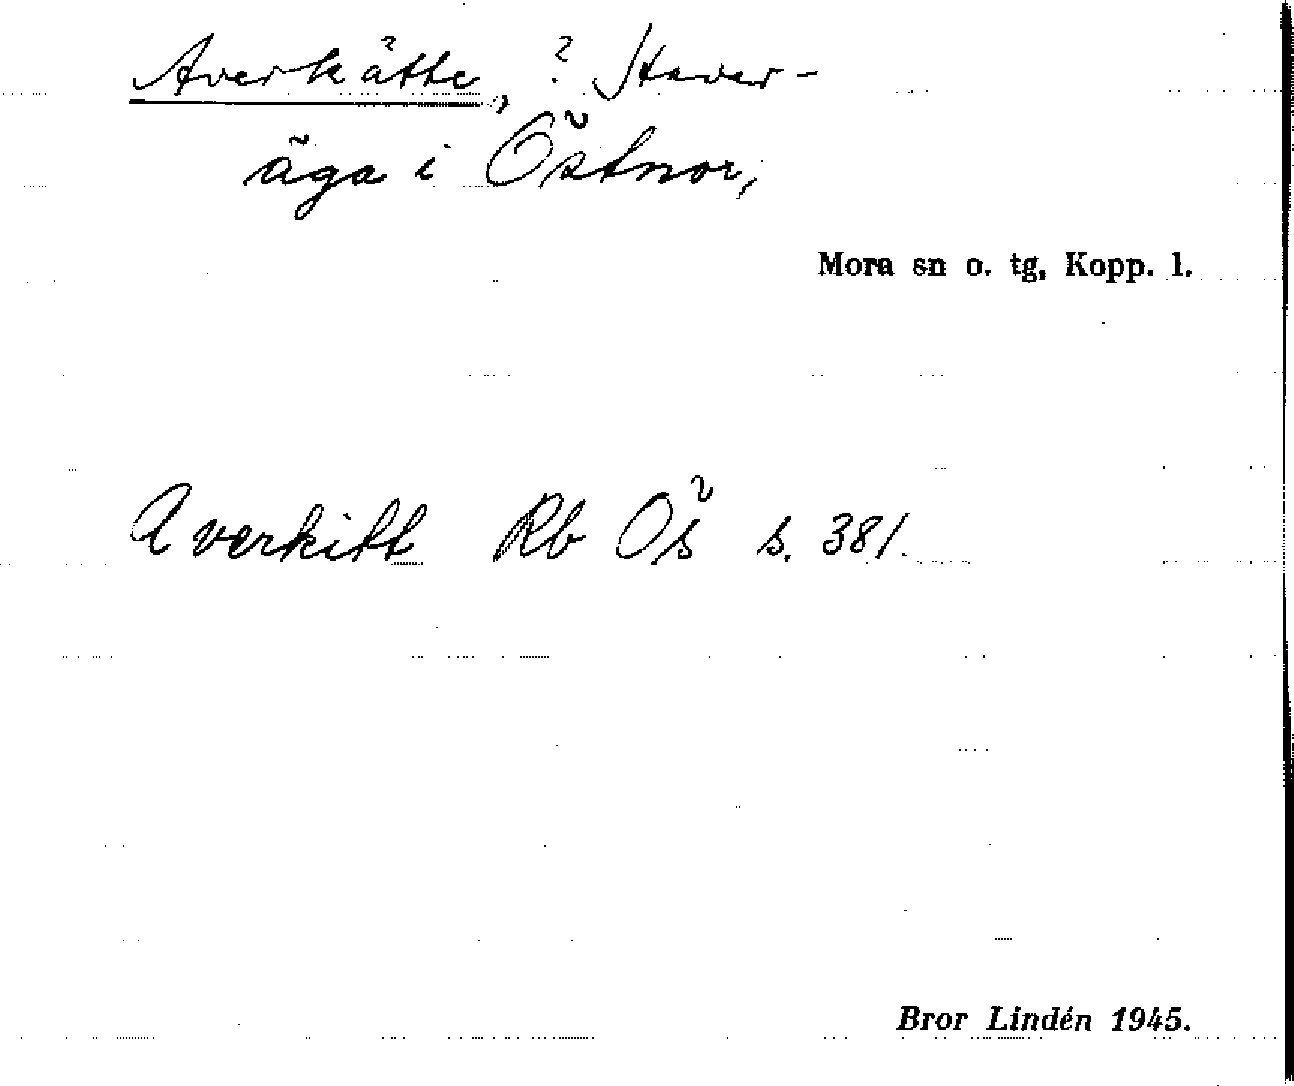 Averkätte, ? Haver-
äga i Östnor,
Mora sn o. tg, Kopp. l.
Averkitt Rb Ös s. 381.
Bror Lindén 1945.